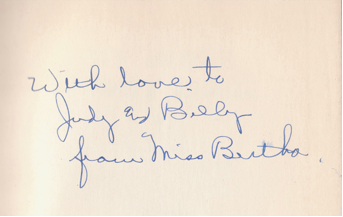 With love to
Judy and Billy
from Miss Bertha.